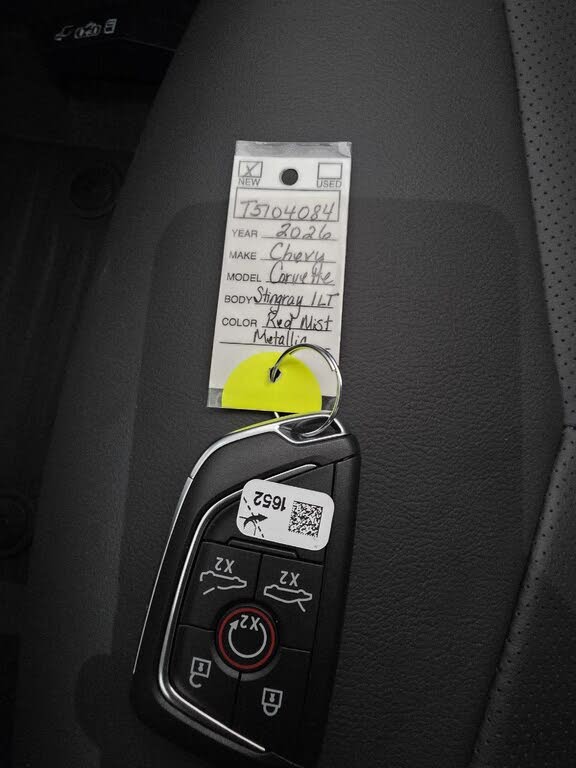 X
NEW USED
T5104084
YEAR 2026
MAKE Chevy
MODEL Corvette
BODY Stingray 1LT
COLOR Red Mist
Metallic
1652
X2 X2
X2